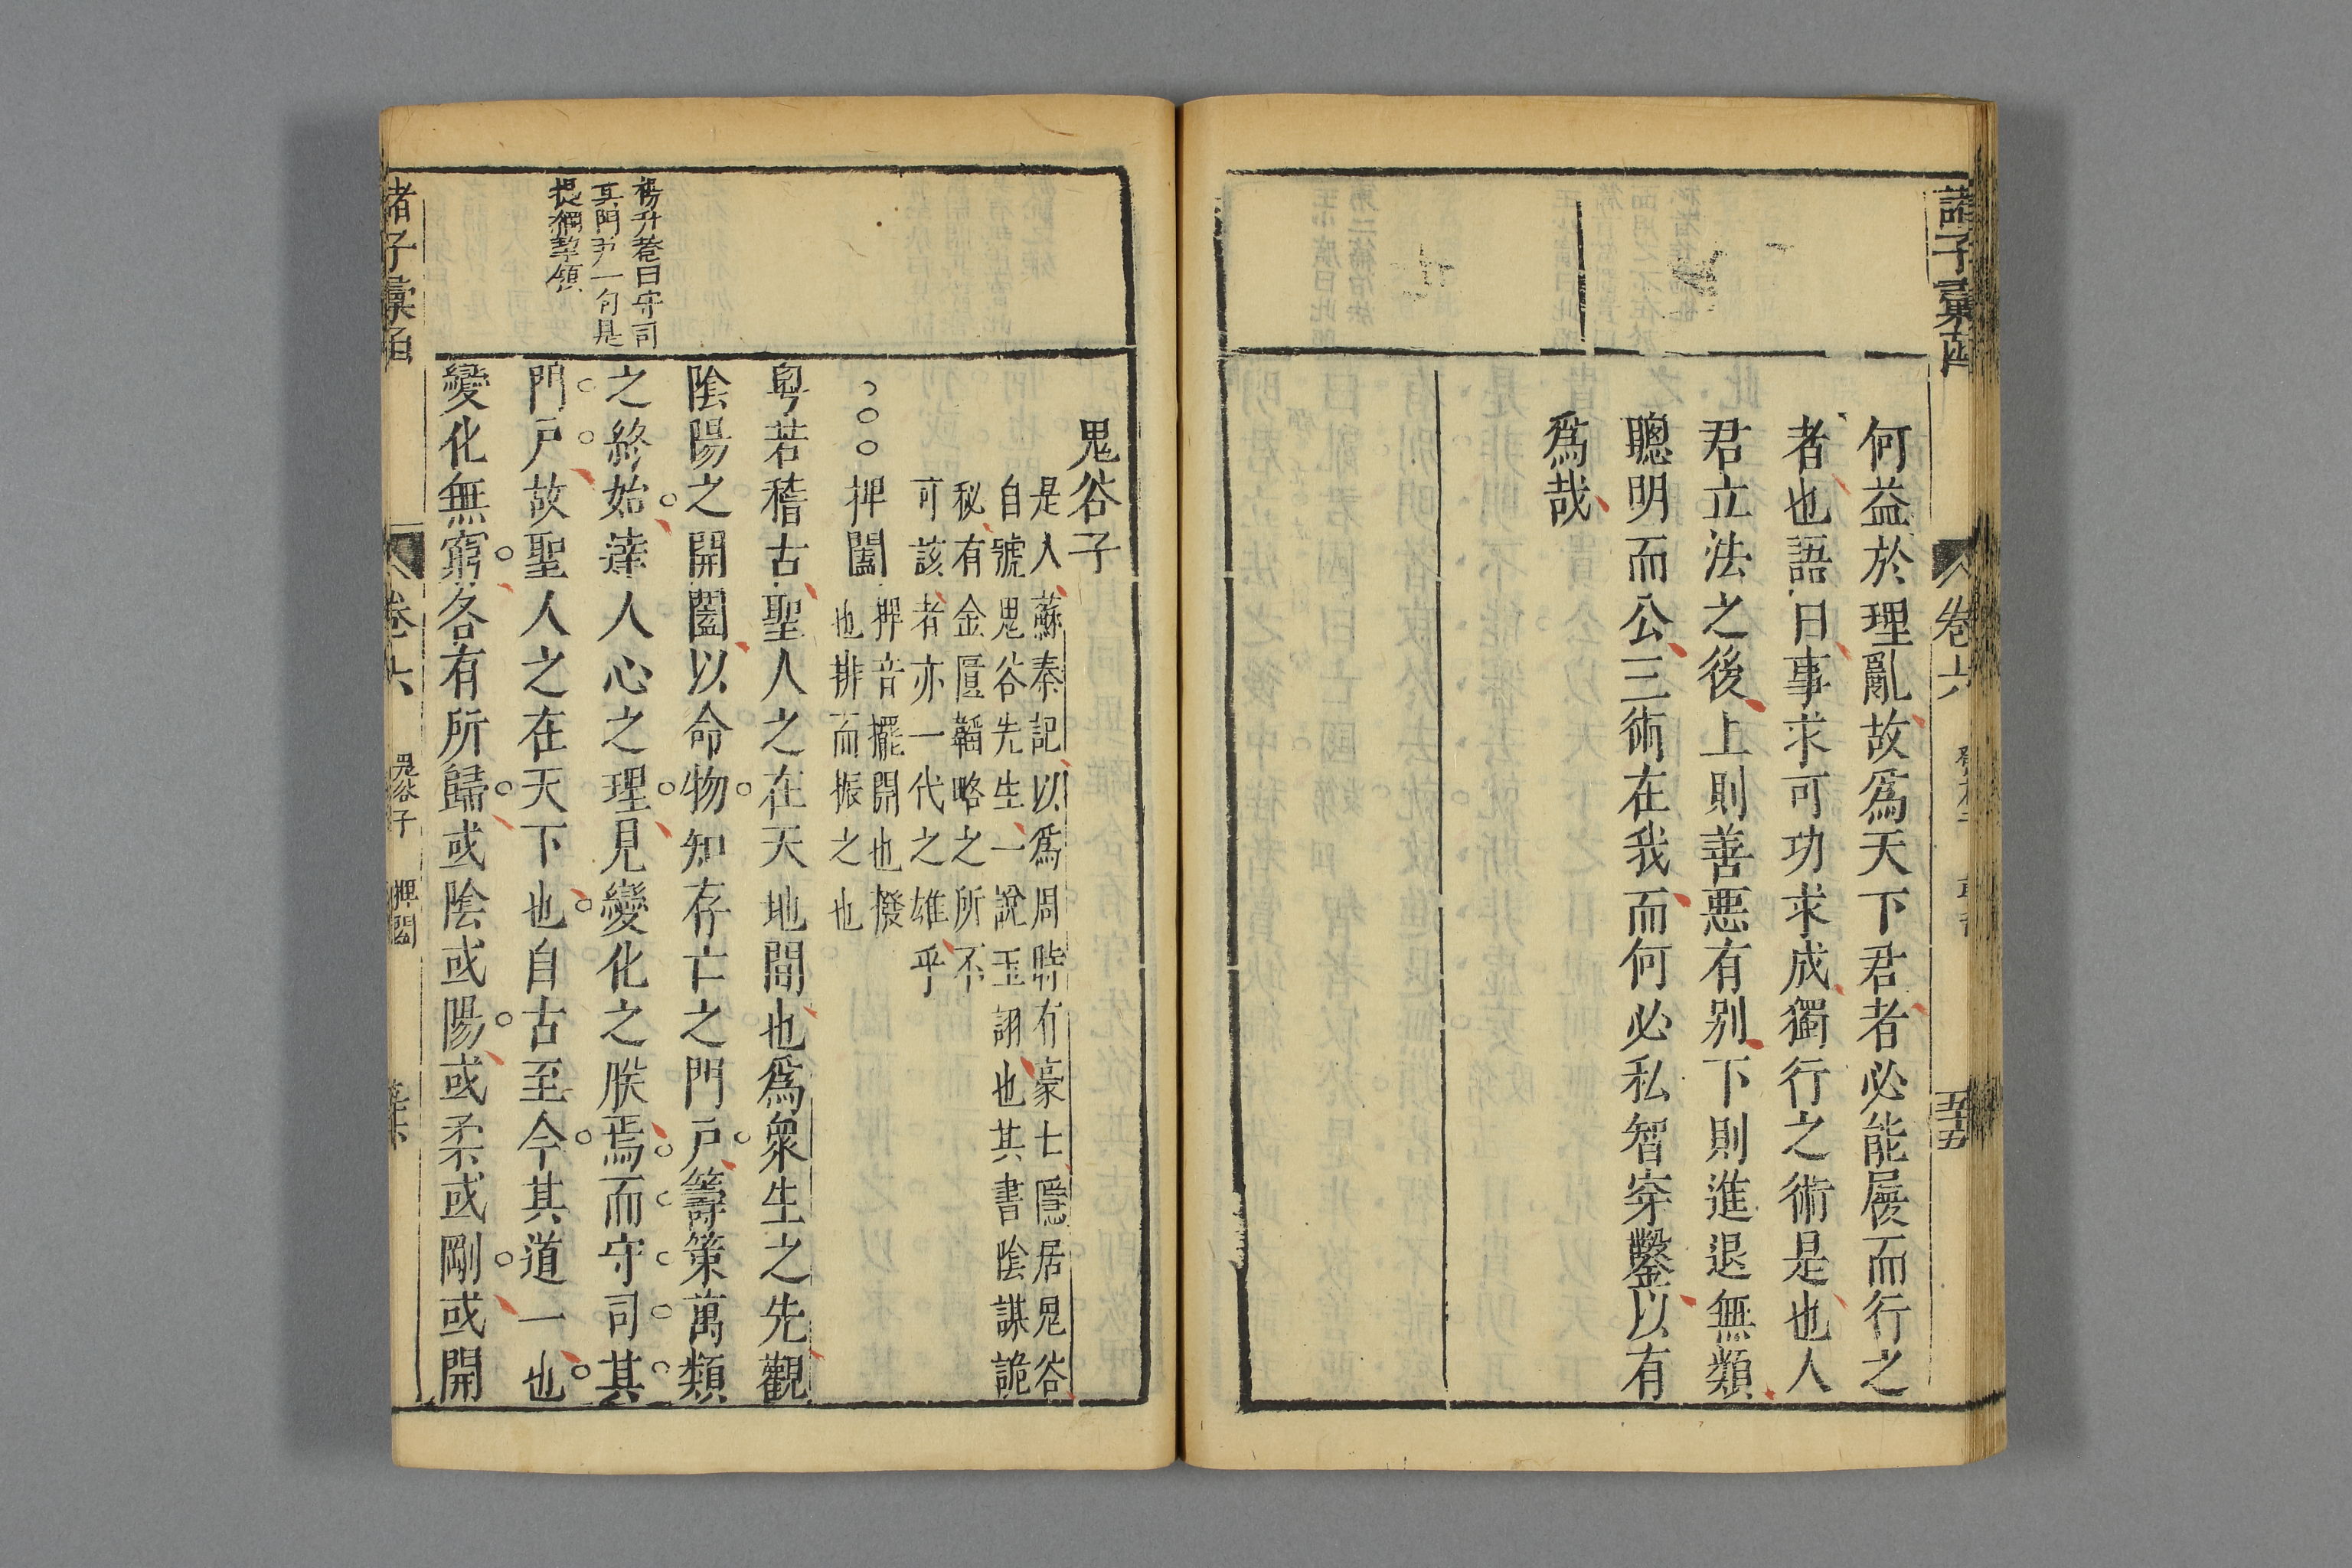 諸子彙函
卷六
五十五
何益於理亂故爲天下君者必能屨而行之
者也語曰事求可功求成獨行之術是也人
君立法之後上則善惡有别下則進退無類
聰明而公三術在我而何必私智穿鑿以有
爲哉
鬼谷子
是人蘇秦記以爲周時有豪士隱居鬼谷
自號鬼谷先生一說王詡也其書陰謀詭
秘有金匱韜略之所不
可該者亦一代之雄乎
捭闔
捭音擺開也撥
也排而振之也
粤若稽古聖人之在天地間也爲衆生之先觀
陰陽之開闔以命物知存亡之門戸籌策萬類
之終始達人心之理見變化之朕焉而守司其
門戸故聖人之在天下也自古至今其道一也
變化無窮各有所歸或陰或陽或柔或剛或開
楊升菴曰守司
其門戸一句是
提綱挈領
諸子彙函
卷六
鬼谷子
捭闔